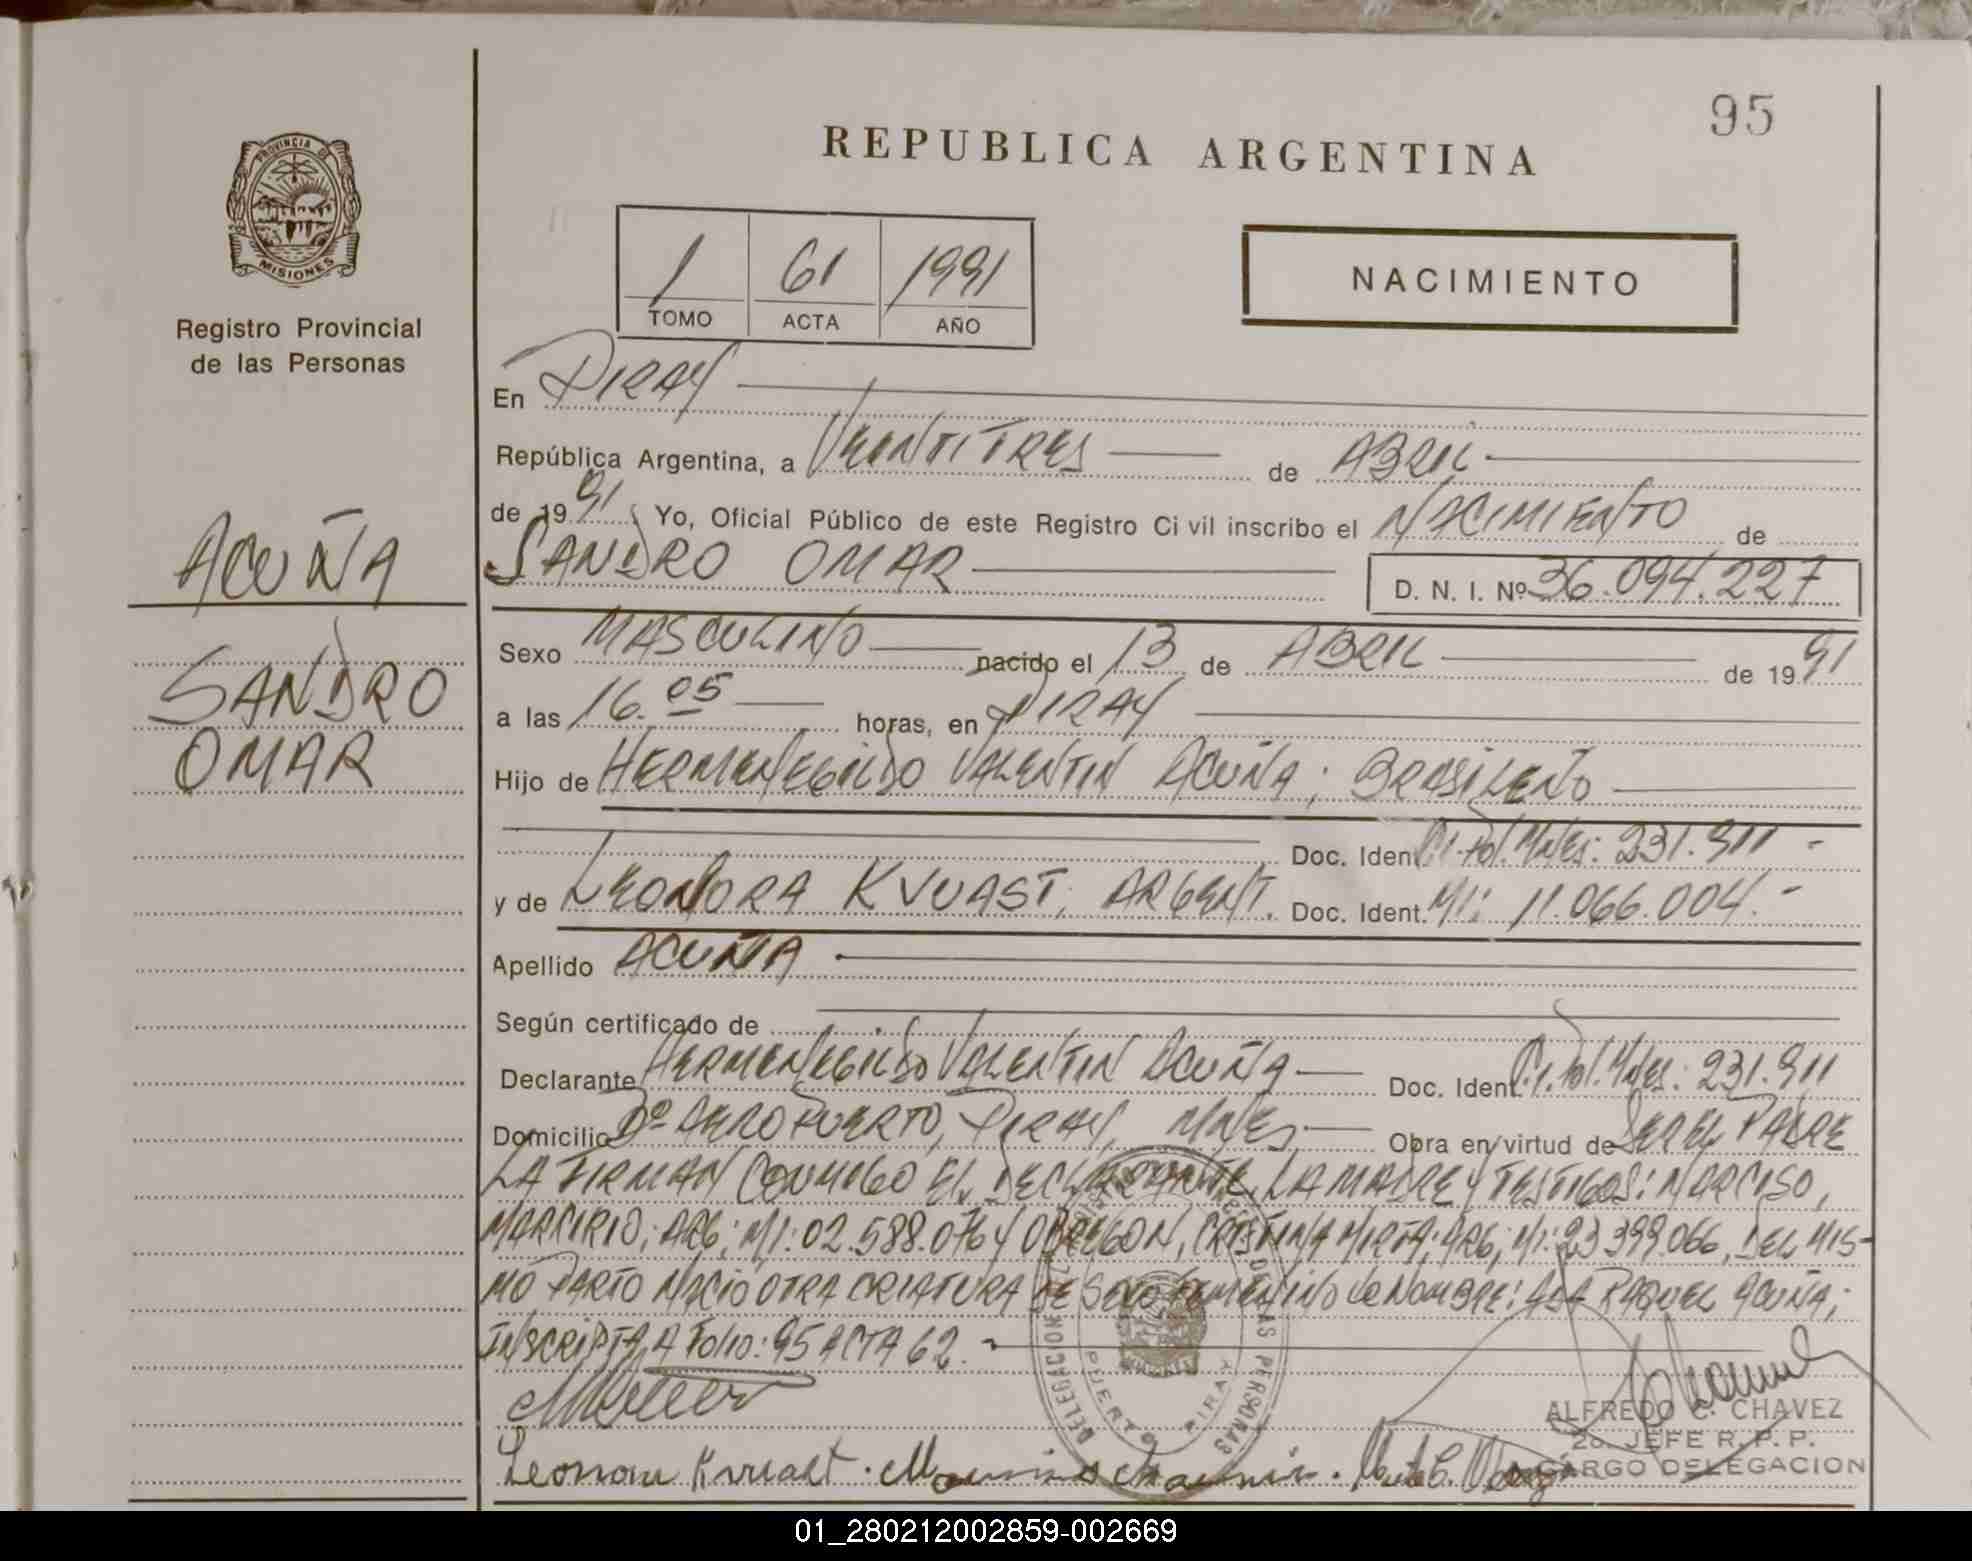 95
REPUBLICA ARGENTINA
PROVINCIA DE
MISIONES
Registro Provincial
de las Personas
1 61 1991
TOMO ACTA AÑO
NACIMIENTO
En PIRAY
República Argentina, a VEINTITRES de ABRIL
de 1991 Yo, Oficial Público de este Registro Civil inscribo el NACIMIENTO de
ACUÑA
SANDRO OMAR
D. N. I. Nº 36.094.227
SANDRO
OMAR
Sexo MASCULINO nacido el 13 de ABRIL de 1991
a las 16.05 horas, en PIRAY
Hijo de HERMENEGILDO VALENTIN ACUÑA; BRASILEÑO
Doc. Ident. C.I. Pol. Mnes: 231.911 -
y de LEONORA KVUAST; ARGENT. Doc. Ident. MI: 11.066.004.-
Apellido ACUÑA
Según certificado de
Declarante HERMENEGILDO VALENTIN ACUÑA Doc. Ident. C.I. Pol. Mnes: 231.911
Domicilio Bº AEROPUERTO, PIRAY, MNES Obra en virtud de SER EL PADRE
LA FIRMAN CONMIGO EL DECLARANTE, LA MADRE Y TESTIGOS: NARCISO,
MARCIRIO; ARG; MI: 02.588.076 Y OBREGON, CRISTINA MIRTA; ARG; MI: 23 399.066, DEL MIS-
MO PARTO NACIO OTRA CRIATURA DE SEXO FEMENINO de NOMBRE: ANA RAQUEL ACUÑA;
INSCRIPTA A FOLIO: 95 ACTA 62.-
DELEGACION DE LAS PERSONAS
PUERTO PIRAY
ALFREDO C. CHAVEZ
2o. JEFE R. P. P.
CARGO DELEGACION
Leonora Kvuast
01_280212002859-002669